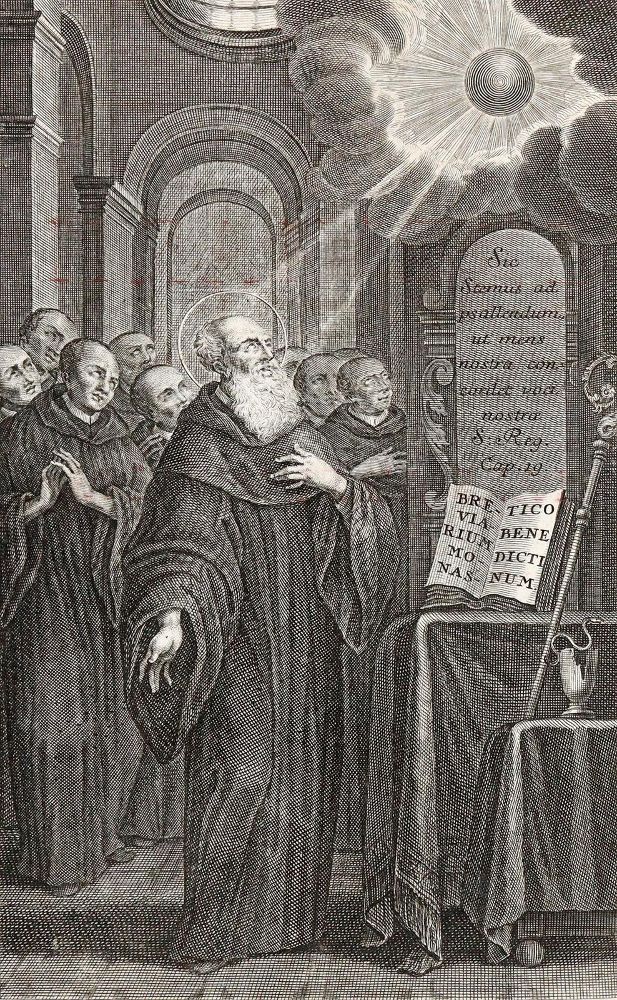 Sic
Stemus ad
psallendum,
ut mens
nostra con-
cordet voci
nostræ
S. Reg.
Cap. 19
BRE-
VIA
RIUM
MO
NAS-
TICO
BENE
DICTI
NUM.